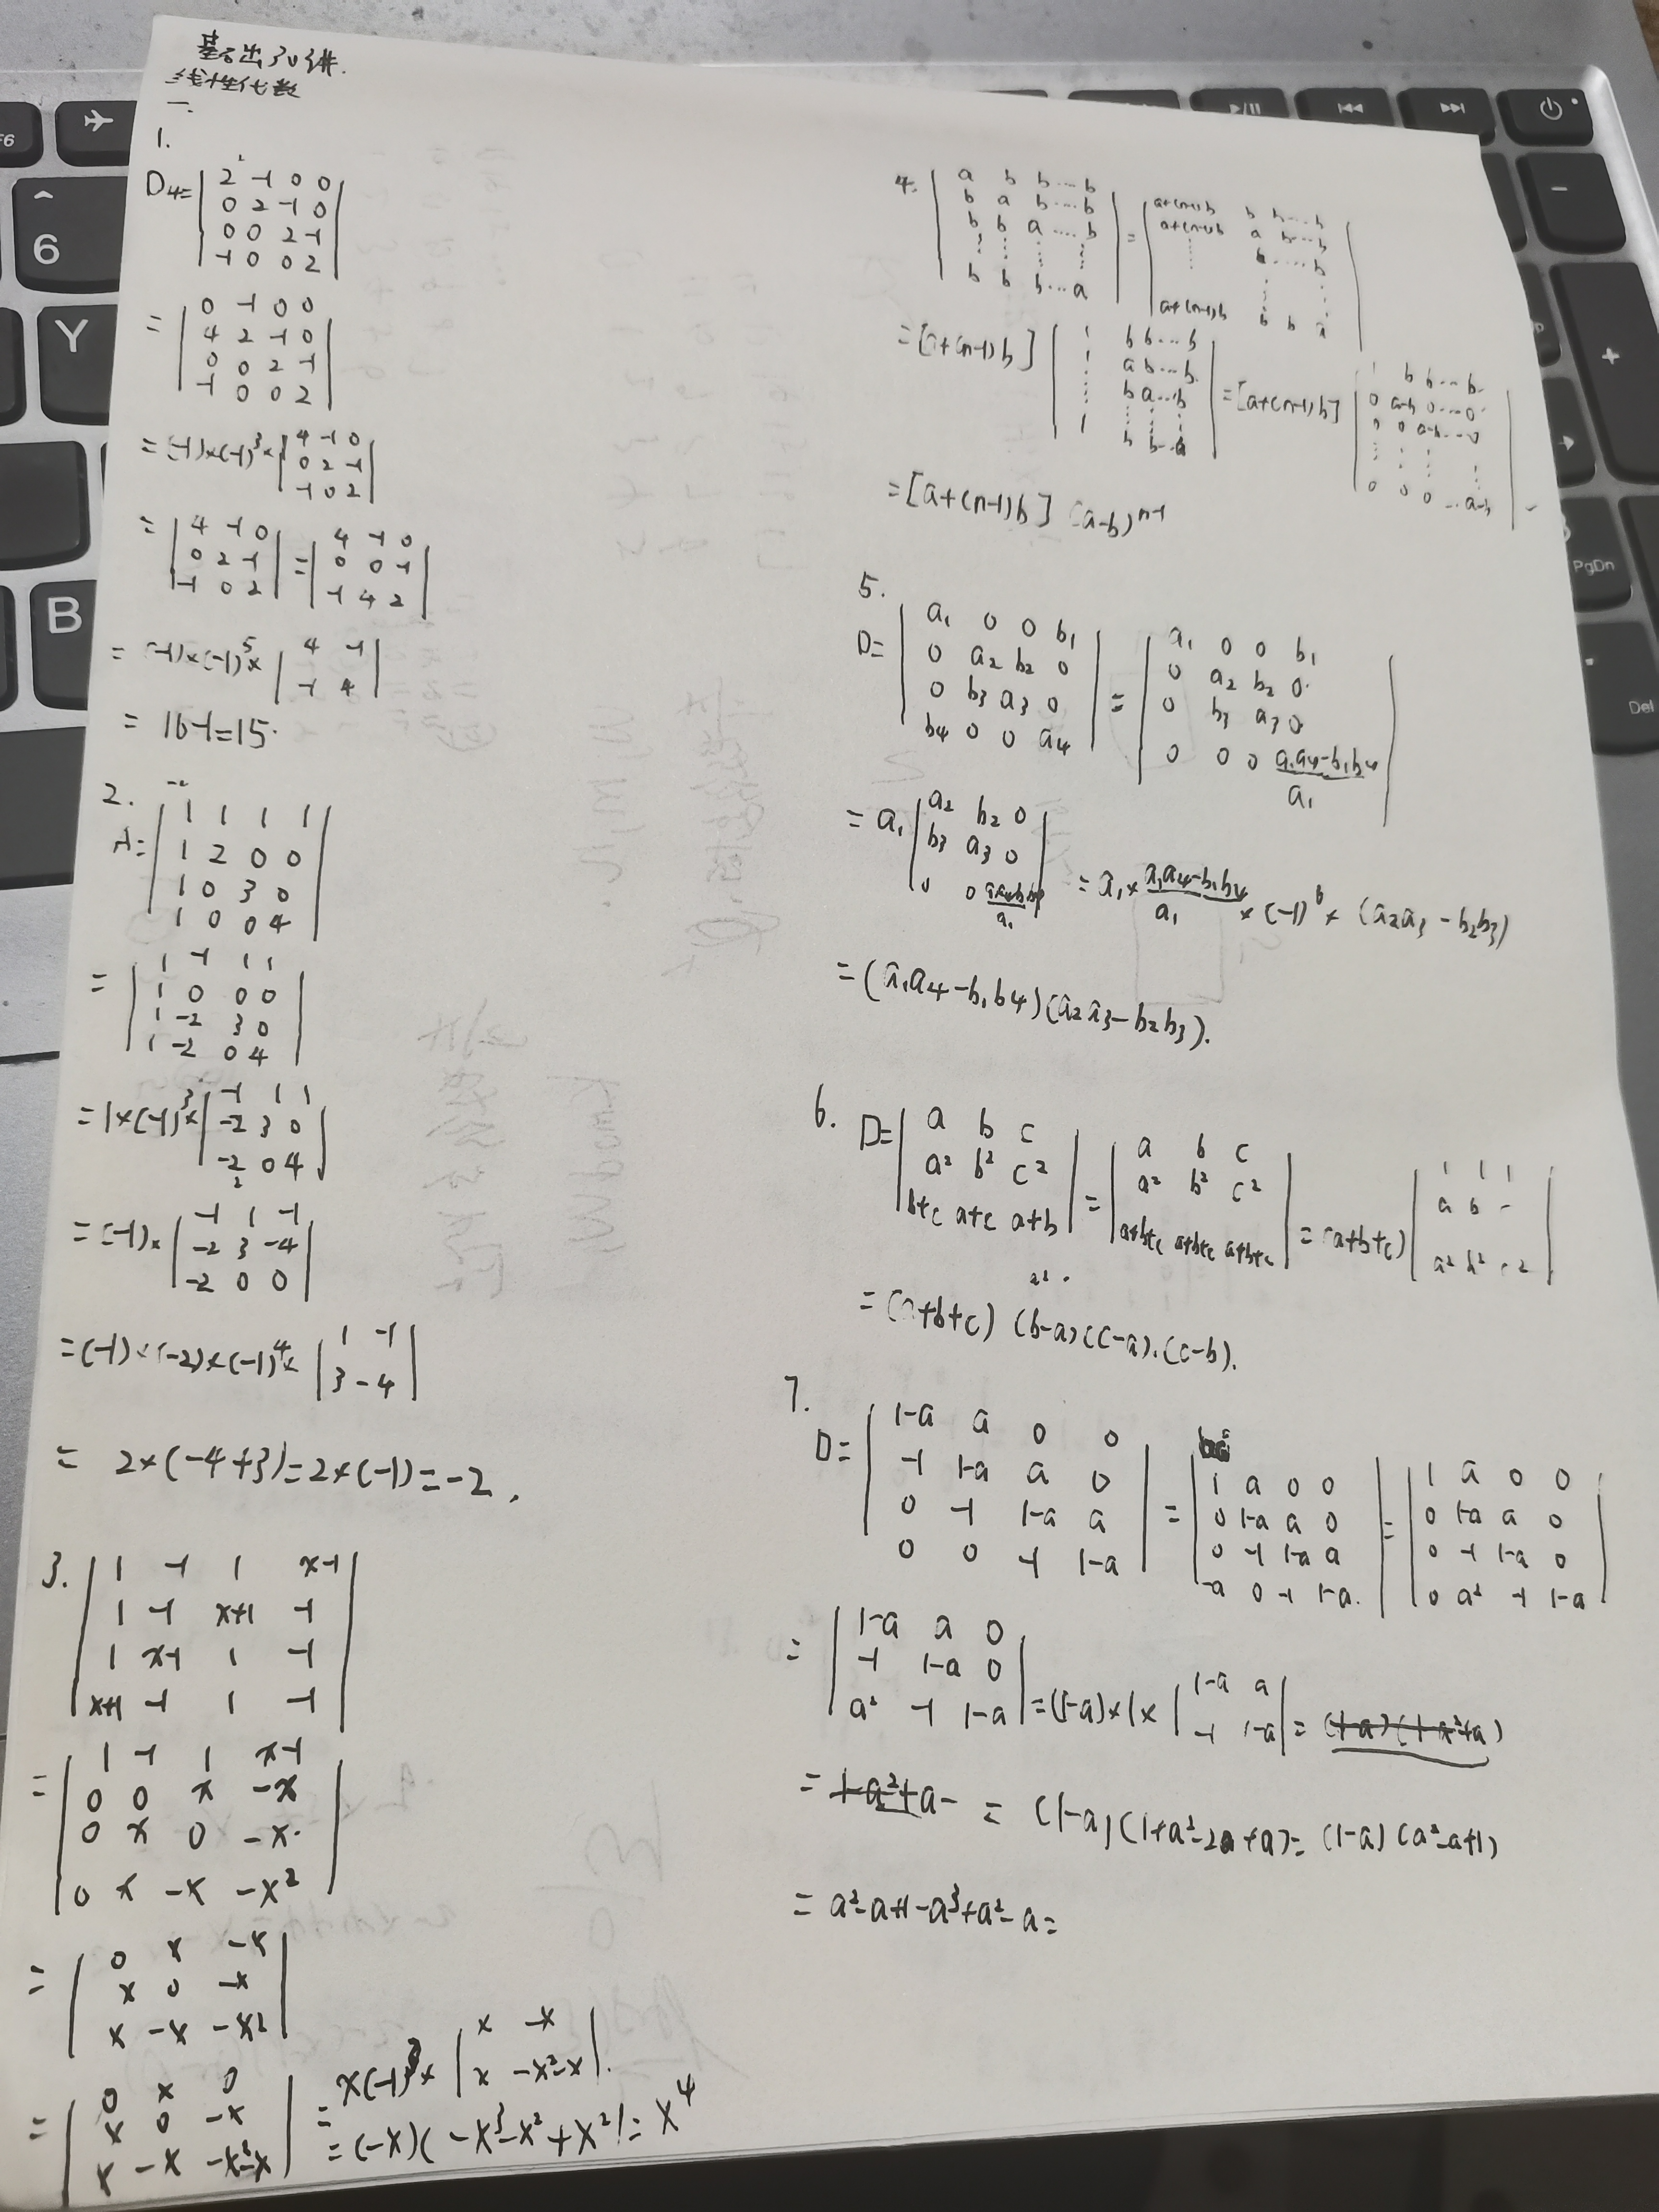 基础30讲.
线性代数
一.
1.
D4= | 2 -1 0 0 |
| 0 2 -1 0 |
| 0 0 2 -1 |
| -1 0 0 2 |
= | 0 -1 0 0 |
| 4 2 -1 0 |
| 0 0 2 -1 |
| -1 0 0 2 |
= (-1)×(-1)³× | 4 -1 0 |
| 0 2 -1 |
| -1 0 2 |
= | 4 -1 0 | = | 4 -1 0 |
| 0 2 -1 | | 0 0 -1 |
| -1 0 2 | | -1 4 2 |
= (-1)×(-1)⁵× | 4 -1 |
| -1 4 |
= 16-1=15.
2.
A= | 1 1 1 1 |
| 1 2 0 0 |
| 1 0 3 0 |
| 1 0 0 4 |
= | 1 -1 1 1 |
| 1 0 0 0 |
| 1 -2 3 0 |
| 1 -2 0 4 |
= 1×(-1)³× | -1 1 1 |
| -2 3 0 |
| -2 0 4 |
= (-1)× | -1 1 -1 |
| -2 3 -4 |
| -2 0 0 |
= (-1)×(-2)×(-1)⁴× | 1 -1 |
| 3 -4 |
= 2×(-4+3)=2×(-1)=-2.
3. | 1 -1 1 x-1 |
| 1 -1 x+1 -1 |
| 1 x-1 1 -1 |
| x+1 -1 1 -1 |
= | 1 -1 1 x-1 |
| 0 0 x -x |
| 0 x 0 -x |
| 0 x -x -x² |
= | 0 x -x |
| x 0 -x |
| x -x -x² |
= | 0 x 0 | = x(-1)³× | x -x |
| x 0 -x | | x -x²-x |.
| x -x -x²-x | = (-x)(-x³-x²+x²)=x⁴
4. | a b b … b | = | a+(n-1)b b b … b |
| b a b … b | | a+(n-1)b a b … b |
| b b a … b | | ⋮ b … b |
| b b b … a | | a+(n-1)b b b a |
= [a+(n-1)b] | 1 b b … b | = [a+(n-1)b] | 1 b b … b |
| 1 a b … b | | 0 a-b 0 … 0 |
| ⋮ b a … b | | 0 0 a-b … 0 |
| 1 b b a | | 0 0 0 … a-b |
= [a+(n-1)b] (a-b)ⁿ⁻¹
5.
D= | a₁ 0 0 b₁ | = | a₁ 0 0 b₁ |
| 0 a₂ b₂ 0 | | 0 a₂ b₂ 0 |
| 0 b₃ a₃ 0 | | 0 b₃ a₃ 0 |
| b₄ 0 0 a₄ | | 0 0 0 (a₁a₄-b₁b₄)/a₁ |
= a₁ | a₂ b₂ 0 |
| b₃ a₃ 0 |
| 0 0 (a₁a₄-b₁b₄)/a₁ | = a₁× (a₁a₄-b₁b₄)/a₁ ×(-1)⁶× (a₂a₃-b₂b₃)
= (a₁a₄-b₁b₄)(a₂a₃-b₂b₃).
6. D= | a b c | = | a b c | = (a+b+c) | 1 1 1 |
| a² b² c² | | a² b² c² | | a b - |
| b+c a+c a+b | | a+b+c a+b+c a+b+c | | a² b² c² |
= (a+b+c) (b-a)(c-a).(c-b).
7.
D= | 1-a a 0 0 | = | 1 a 0 0 | = | 1 a 0 0 |
| -1 1-a a 0 | | 0 1-a a 0 | | 0 1-a a 0 |
| 0 -1 1-a a | | 0 -1 1-a a | | 0 -1 1-a 0 |
| 0 0 -1 1-a | | -a 0 -1 1-a | | 0 a² -1 1-a |
= | 1-a a 0 |
| -1 1-a 0 |
| a² -1 1-a | = (1-a)×1× | 1-a a | = (1-a)(1-a²+a)
| -1 1-a |
= 1-a²+a- = (1-a)(1+a²-2a+a)= (1-a)(a²-a+1)
= a²-a+1-a³+a²-a=
F6
6
Y
B
PgDn
Del